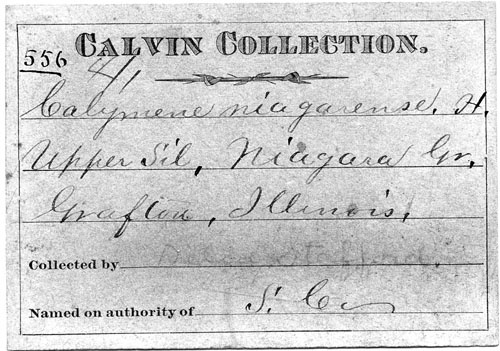 556 CALVIN COLLECTION.
4/1
Calymene niagarense. H.
Upper Sil, Niagara Gr.
Grafton, Illinois.
Collected by
Named on authority of S. C.